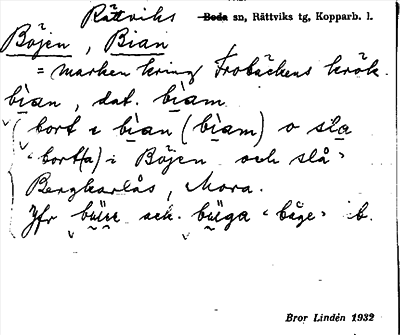 Rättviks Boda sn, Rättviks tg, Kopparb. l.
Böjen, Bian
= marken kring Frobäckens krök.
bìan, dat. bìam
(bort i bìan (bìam) o sla
"bort(a) i Böjen och slå"
Bergkarlås, Mora.
Jfr och. buga "båge" b.
Bror Lindén 1932